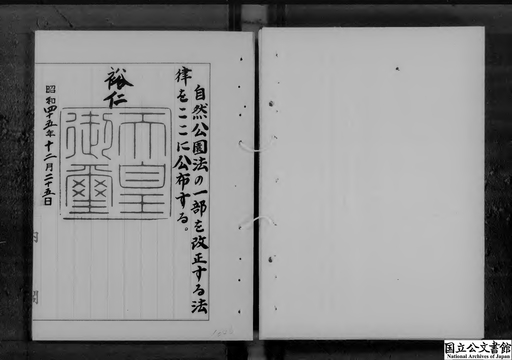 自然公園法の一部を改正する法
律をここに公布する。
裕仁
天皇
御璽
昭和四十五年十二月二十五日
内閣
国立公文書館
National Archives of Japan